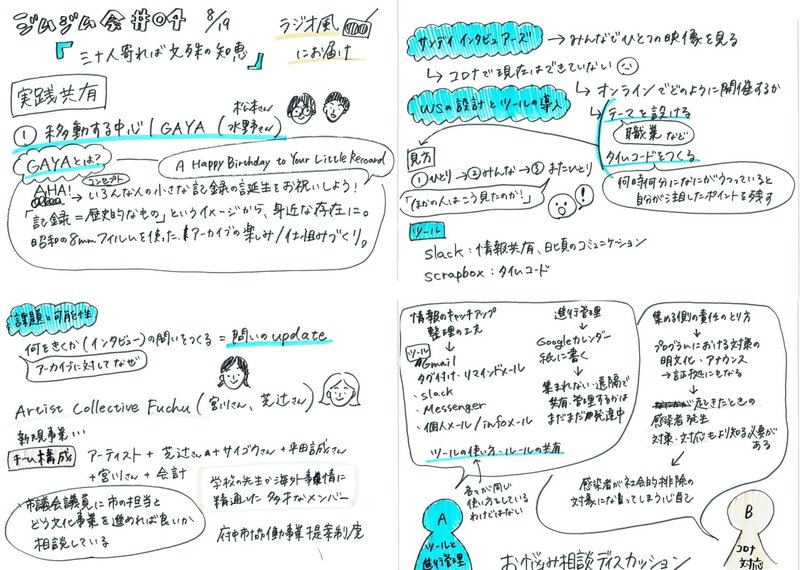 ジムジム会 #04 8/19
『三十人寄れば文殊の知恵』
ラジオ風
にお届け
実践共有
① 移動する中心 | GAYA (松本さん 水野さん)
GAYAとは?
A Happy Birthday to Your Little Record
AHA!
コンセプト
→ いろんな人の小さな記録の誕生をお祝いしよう!
「記録=歴史的なもの」というイメージから、身近な存在に。
昭和の8mmフィルムを使った、アーカイブの楽しみ/仕組みづくり。
サンデーインタビュアーズ → みんなでひとつの映像を見る
↳ コロナで現在はできていない
↳ オンラインでどのように開催するか
WSの設計とツールの導入
テーマを設ける
職業など
タイムコードをつくる
何時何分になにがうつっていると
自分が注目したポイントを残す
見方
①ひとり → ②みんな → ③またひとり
「ほかの人はこう見たのか!」
ツール
slack : 情報共有、日頃のコミュニケーション
scrapbox : タイムコード
課題と可能性
何をきくか(インタビュー)の問いをつくる = 問いのupdate
アーカイブに対してなぜ
Artist Collective Fuchu (宮川さん、芝辻さん)
新規事業…
チーム構成
アーティスト + 芝辻さん + サイゴウさん + 平田誠さん
+ 宮川さん + 会計
市議会議員に市の担当と
どう文化事業を進めれば良いか
相談している
学校の先生が海外事情に
精通した多才なメンバー
府中市協働事業提案制度
情報のキャッチアップ
整理の工夫
↓
ツール
・Gmail
タグ付け・リマインドメール
・slack
・Messenger
・個人メール/infoメール
進行管理
↓
Googleカレンダー
紙に書く
↓
集まれない・遠隔で
共有・管理するかは
まだまだ発達中
ツールの使い方・ルールの共有
各々が同じ
使い方をしている
わけではない
A
ツールと
進行管理
集める側の責任のとり方
↓
プログラムにおける対策の
明文化・アナウンス
→ 証拠にもなる
起きたときの
感染者発生
対策・対応もより知る必要が
ある
↓
感染者が社会的排除の
対象になってしまう心配
B
コロナ
対応
お悩み相談ディスカッション